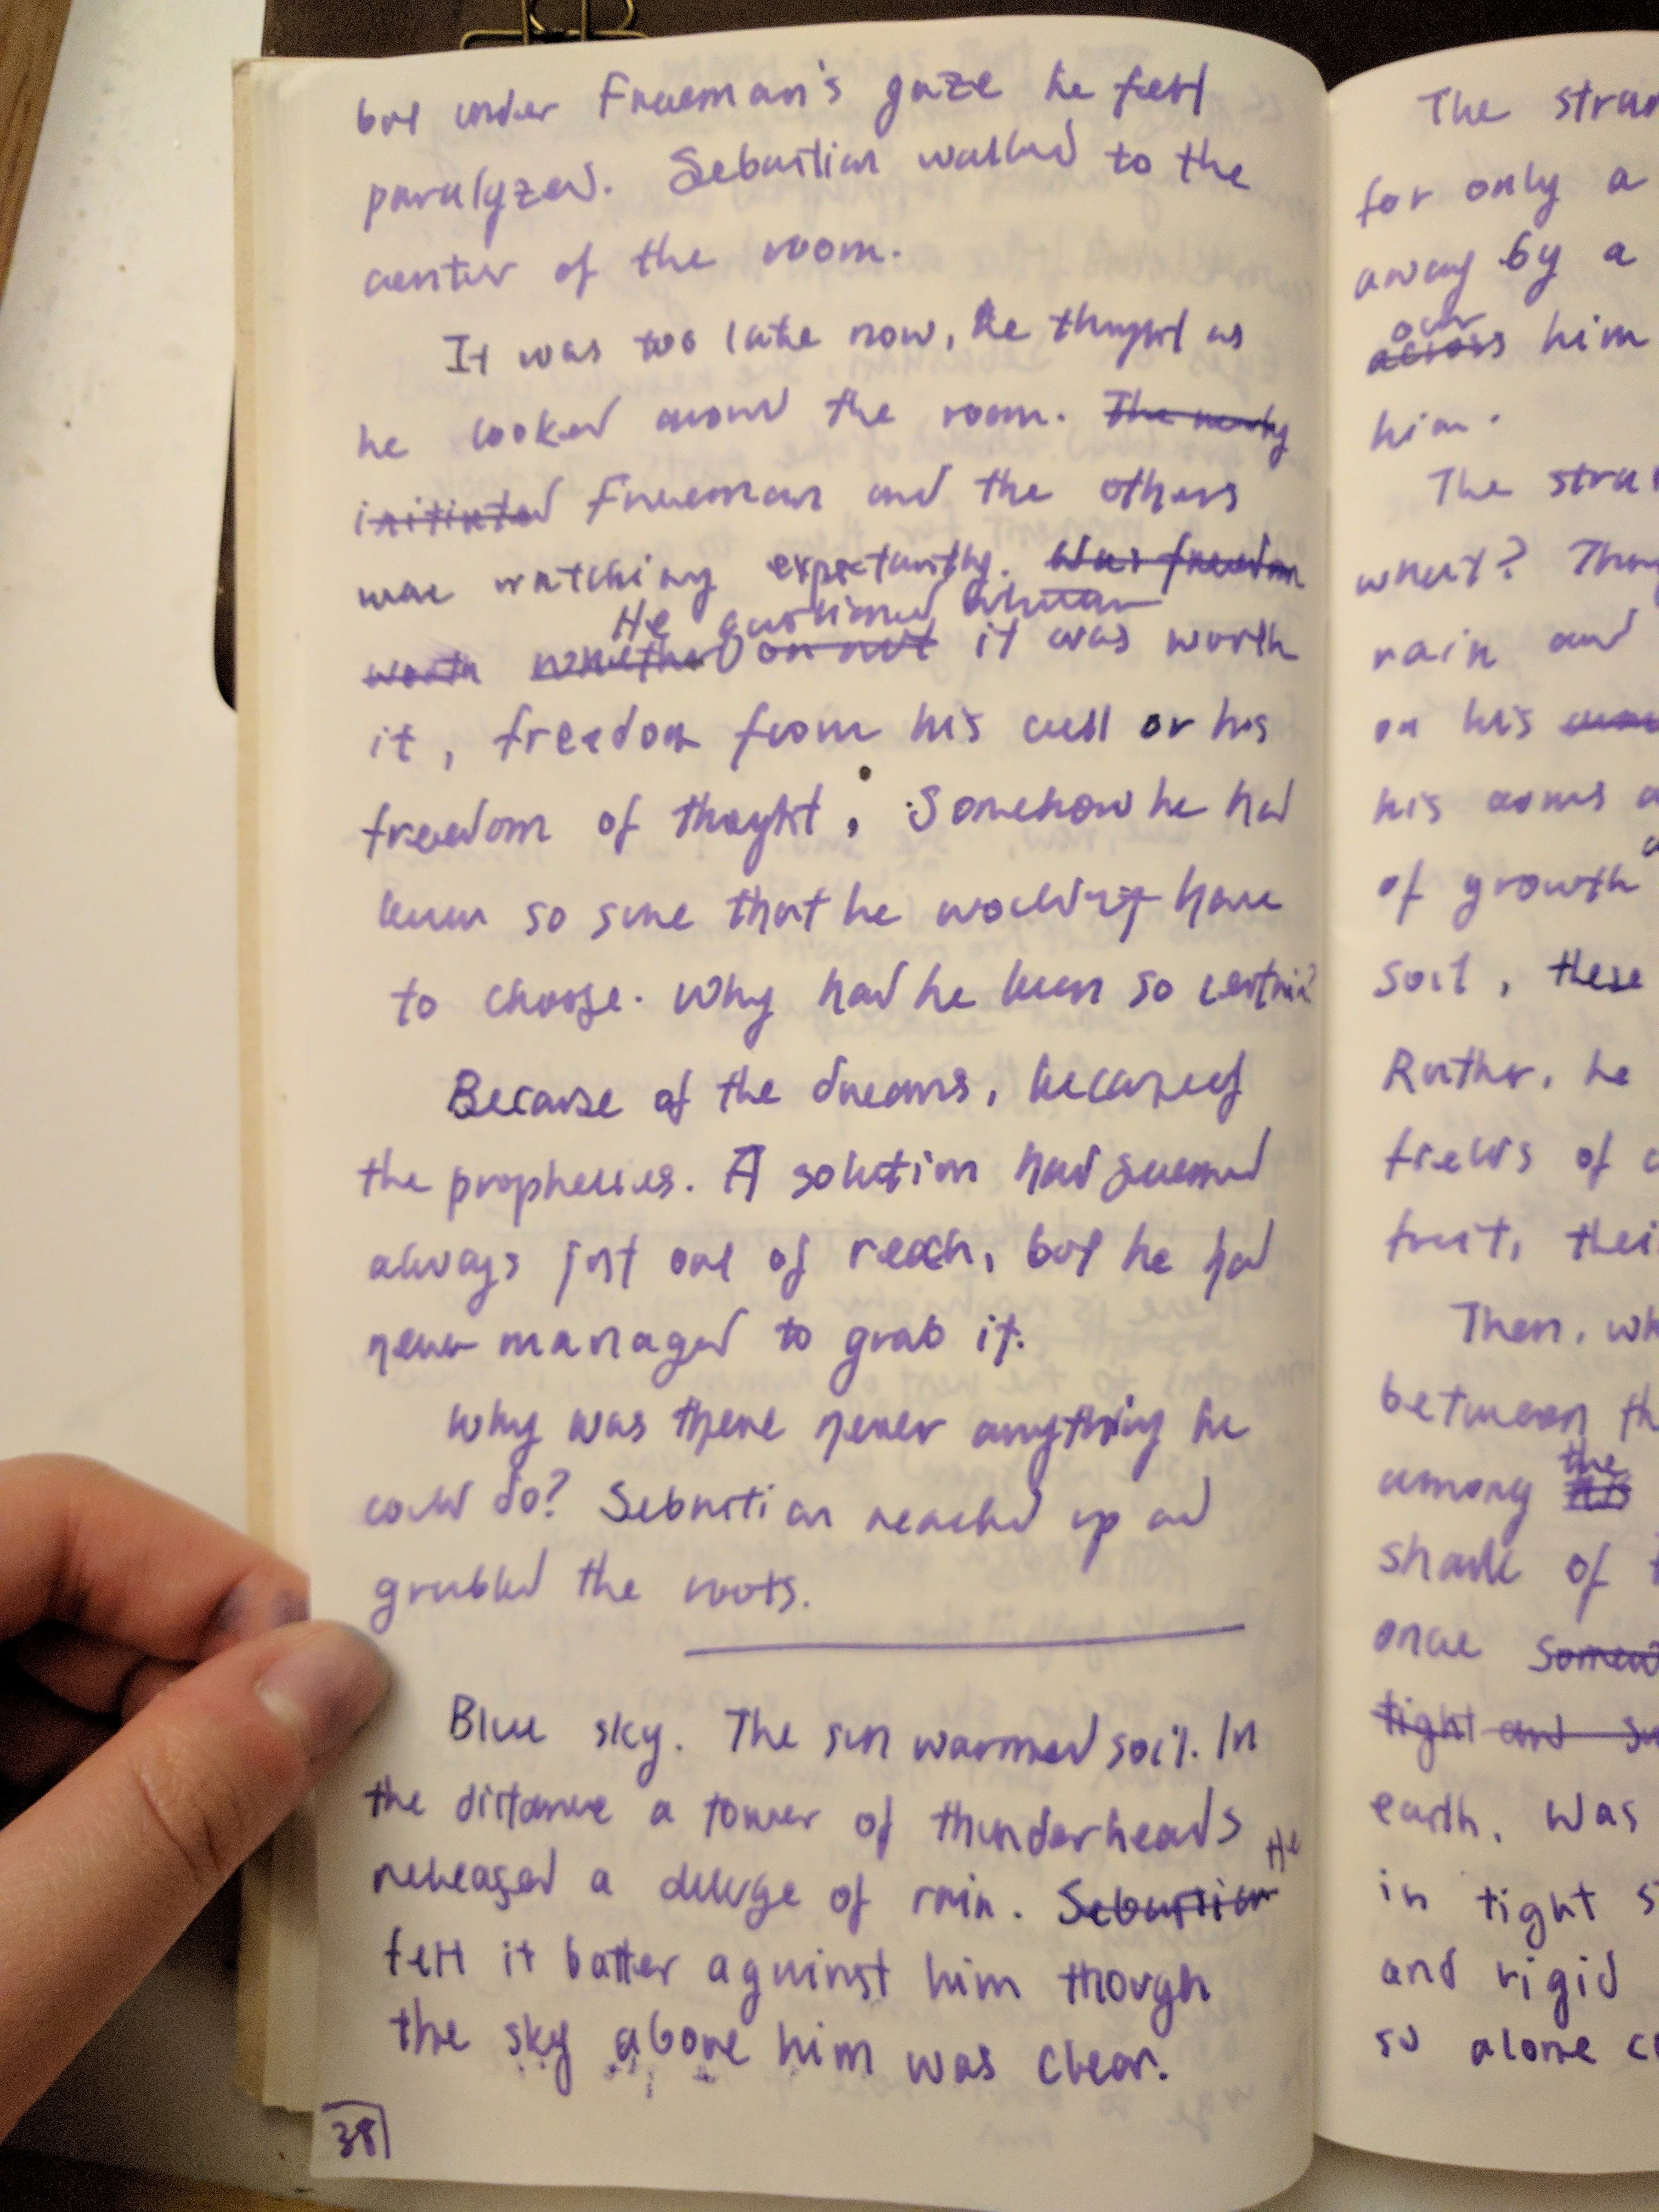 but under Freeman's gaze he felt
paralyzed. Sebastian walked to the
center of the room.
It was too late now, he thought as
he looked around the room. The newly
initiated Freeman and the others
were watching expectantly. Was freedom
He questioned
worth whether or not it was worth
it, freedom from his cell or his
freedom of thought. Somehow he had
been so sure that he wouldn't have
to choose. Why had he been so certain?
Because of the dreams, because of
the prophecies. A solution had seemed
always just out of reach, but he had
never managed to grab it.
Why was there never anything he
could do? Sebastian reached up and
grabbed the roots.
Blue sky. The sun warmed soil. In
the distance a tower of thunderheads
released a deluge of rain. Sebastian He
felt it batter against him though
the sky above him was clear.
38
The
for only a
away by a
over
across him
him.
The
what?
rain and
on his
his arms
of growth
soil, these
Rather, he
fields of
fruit,
Then,
between
the
among
shade of
once
tight and
earth. Was
in tight
and rigid
so alone